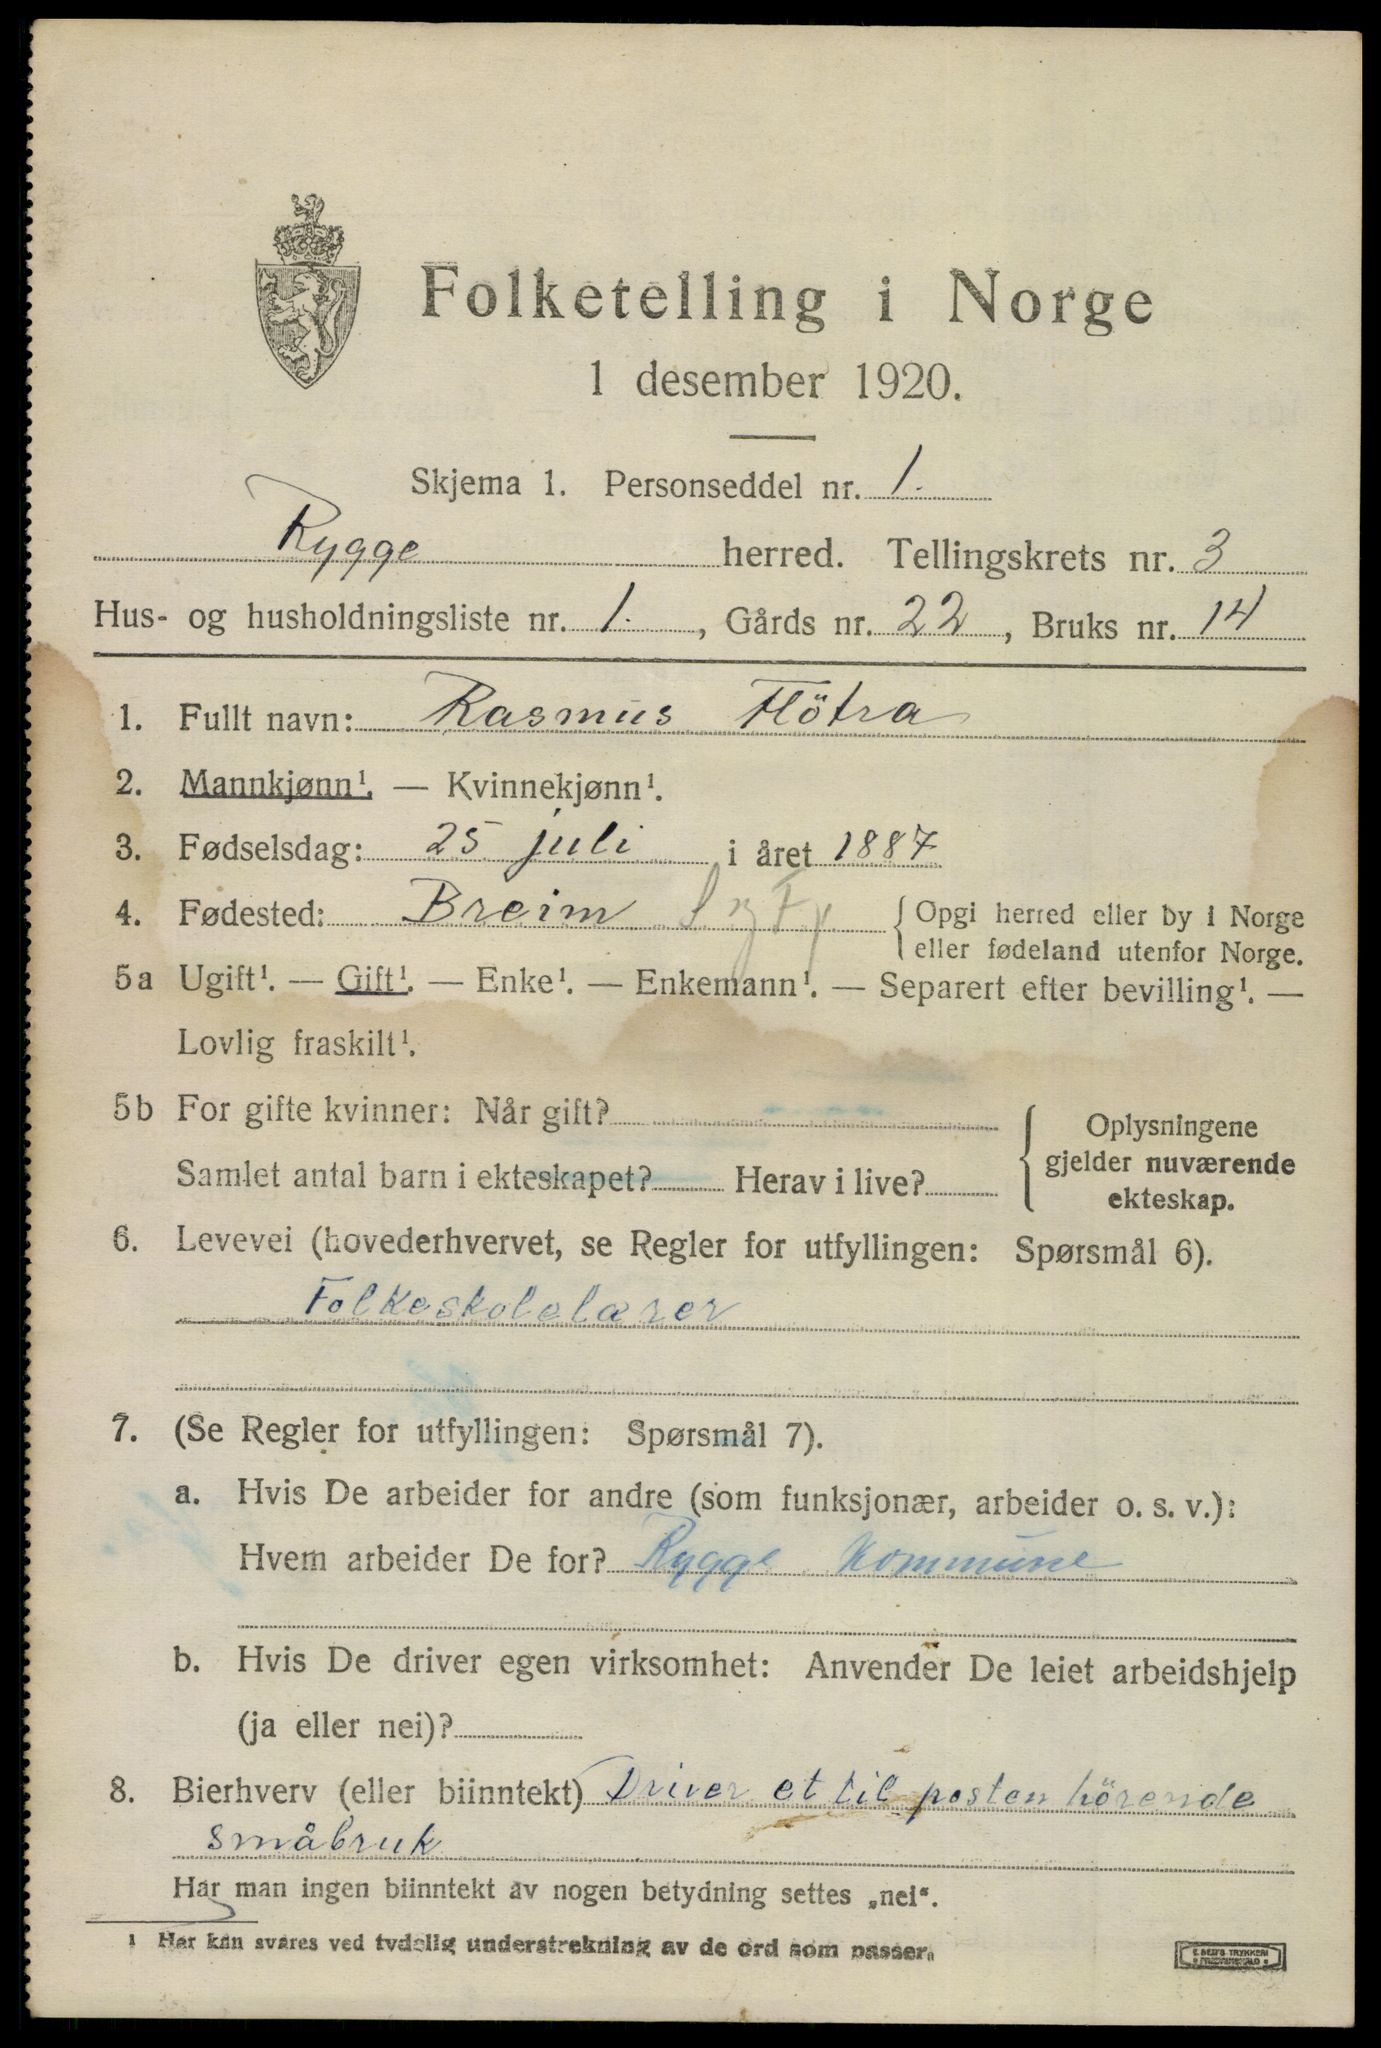 Folketelling i Norge
1 desember 1920.
Skjema 1. Personseddel nr. 1.
Rygge herred. Tellingskrets nr. 3
Hus- og husholdningsliste nr. 1., Gårds nr. 22, Bruks nr. 14
1. Fullt navn: Rasmus Flötra
2. Mannkjønn¹. — Kvinnekjønn¹.
3. Fødselsdag: 25 juli i året 1887
4. Fødested: Breim { Opgi herred eller by i Norge
eller fødeland utenfor Norge.
5a Ugift¹. — Gift¹. — Enke¹. — Enkemann¹. — Separert efter bevilling¹. —
Lovlig fraskilt¹.
5b For gifte kvinner: Når gift?
Samlet antal barn i ekteskapet? Herav i live?
{ Oplysningene
gjelder nuværende
ekteskap.
6. Levevei (hovederhvervet, se Regler for utfyllingen: Spørsmål 6).
Folkeskolelærer
7. (Se Regler for utfyllingen: Spørsmål 7).
a. Hvis De arbeider for andre (som funksjonær, arbeider o. s. v.):
Hvem arbeider De for? Rygge Kommune
b. Hvis De driver egen virksomhet: Anvender De leiet arbeidshjelp
(ja eller nei)?
8. Bierhverv (eller biinntekt) Driver et til posten hörende
småbruk
Har man ingen biinntekt av nogen betydning settes „nei“.
¹ Her kan svares ved tydelig understrekning av de ord som passer.